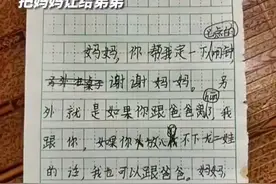 把妈妈让给弟弟
妈妈，你帮我定一下闹钟
谢谢妈妈。另
外就是如果你跟爸爸离了我
跟你，如果你放心不下龙二娃
的话我也可以跟爸爸。妈妈，